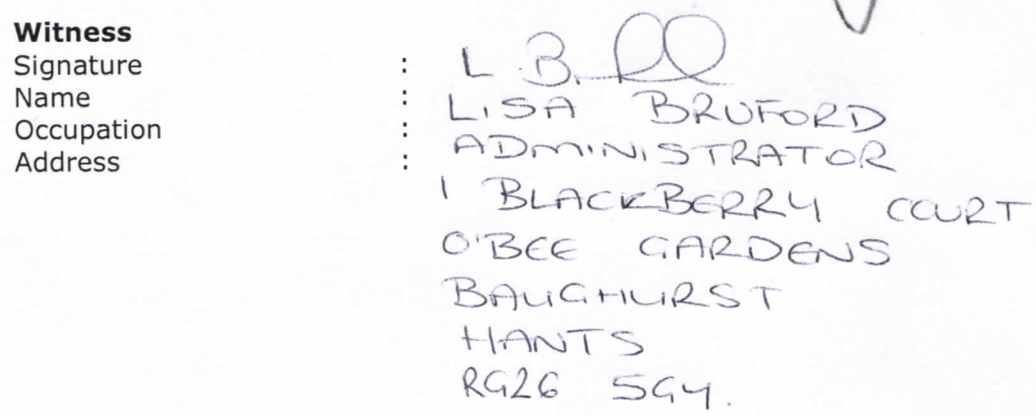 Witness
Signature : L.B
Name : LISA BRUFORD
Occupation : ADMINISTRATOR
Address : 1 BLACKBERRY COURT
O'BEE GARDENS
BAUGHURST
HANTS
RG26 5GY.